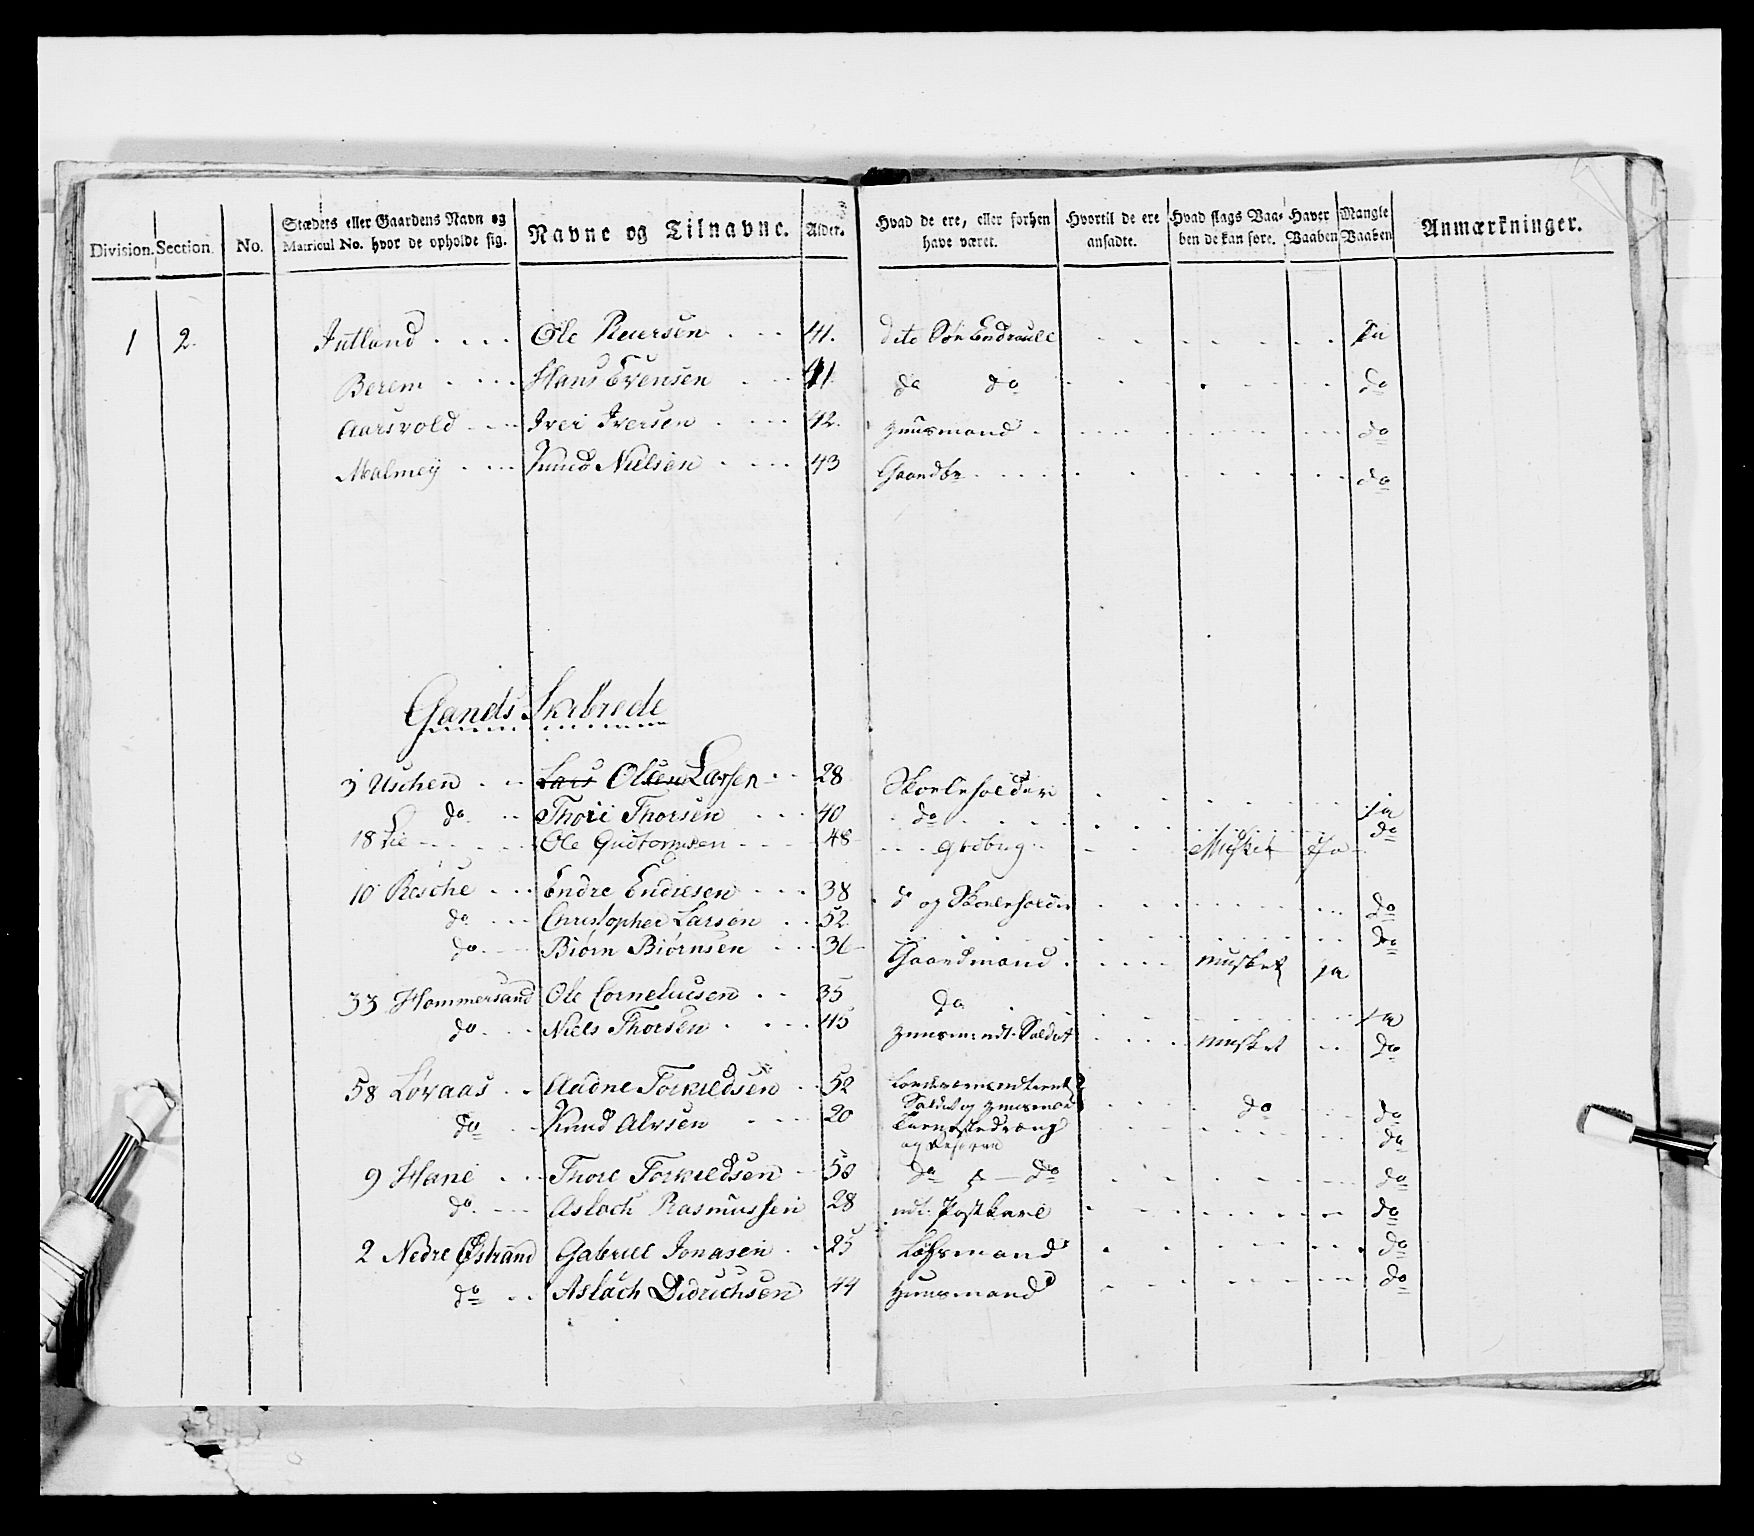 Division. Section. No. Stædets eller Gaardens Navn og Matricul No. hvor de opholde sig. Navne og Tilnavne. Alder. Hvad de ere, eller forhen have været. Hvortil de ere ansadte. Hvad slags Vaaben de kan føre. Haver Vaaben Mangle Vaaben Anmærkninger.
1 2. Jutland Ole 41. Ja
Berem Hans Evensen 41 do do do
Aarsvold Iver Iversen 42. Huusmand do
Malmey Knud Nielsen 43 do
Gands Skibrede
3 Uschen Lars Olsen Larsen 28 Skoeleholder Ja
do Thore Thorsen 40 do do
18 Lie Ole Gudtormsen 48 Musket Ja
10 Rosche Endre Endresen 38 og Skoleholder do
do Christopher Larsen 52 do
do Biørn Biørnsen 36 Gaardmand musket ja
33 Hommersand Ole Cornelucsen 35 do Ja
do Niels Thorsen 45 Soldat musket do
58 Løvaas Aadne Torkeldsen 52 Soldat og Huusmand do do
do Knud Alvsen 20 do
9 Hane Thore Torkeldsen 50 do & do do
do Asloch Rasmussen 28 Postkarl do
2 Nedre Østrand Gabriel Jonasen 25 do
do Asloch Didrichsen 44 Huusmand do